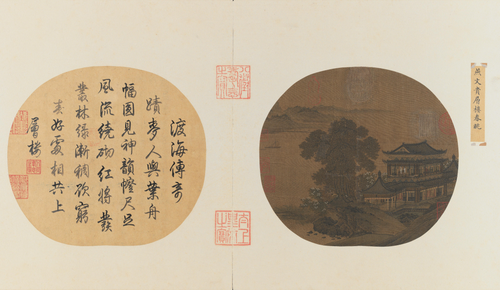 燕文貴層樓春眺
渡海傳奇
蹟人與葉舟
幅圓見神韻尺足
風流繞砌紅將發
叢林綠漸稠欲窮
春好處相共上
層樓